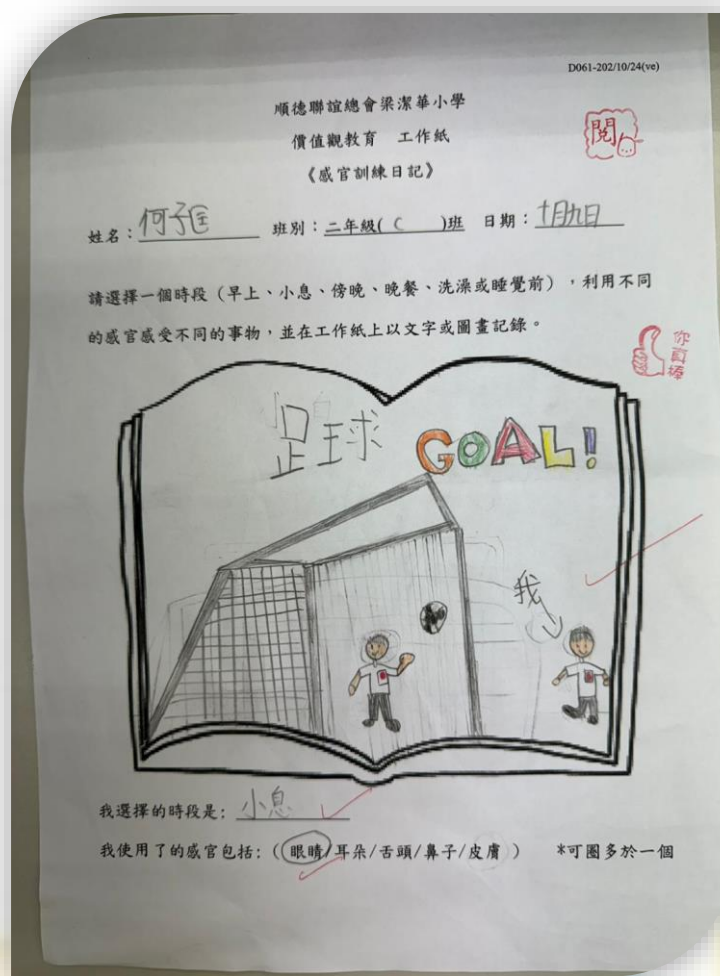 D061-202/10/24(ve)
順德聯誼總會梁潔華小學
價值觀教育 工作紙
閱
《感官訓練日記》
姓名：何子匡 班別：二年級( C )班 日期：十月九日
請選擇一個時段（早上、小息、傍晚、晚餐、洗澡或睡覺前），利用不同
的感官感受不同的事物，並在工作紙上以文字或圖畫記錄。
你真棒
足球 GOAL!
我
我選擇的時段是：小息
我使用了的感官包括：（眼睛/耳朵/舌頭/鼻子/皮膚 ） *可圈多於一個